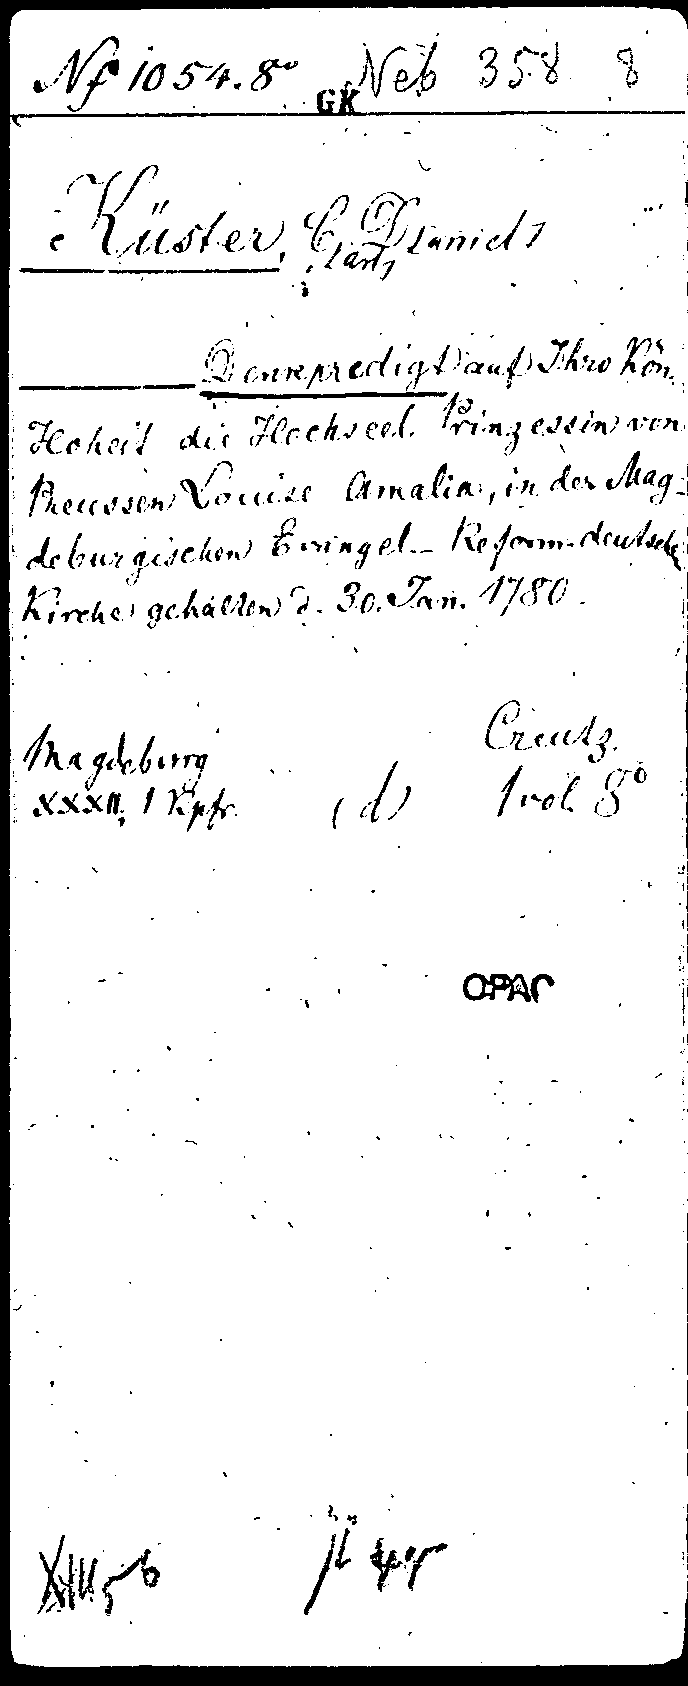 Nf 1054.8° Neb 358 8
GK
Küster, C. Daniel
Carl
Denkpredigt auf Ihro Kön.
Hoheit die Hochseel. Prinzessin von
Preussen Louise Amalia, in der Mag-
deburgischen Evangel.-Reform.deutsche
Kirche gehalten d. 30. Jan. 1780.
Magdeburg Creutz.
XXXII, 1 Kpfr. (d) 1 vol. 8°
OPAC
56 44